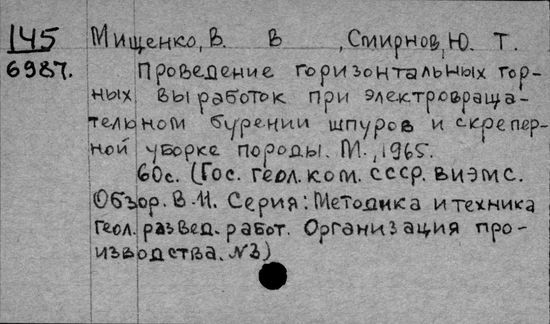 145 Мищенко, В. В , Смирнов, Ю. Т.
6987. Проведение горизонтальных гор-
ных выработок при электровраща-
тельном бурении шпуров и скрепер-
ной уборке породы. М., 1965.
60с. (Гос. геол. ком. СССР. ВИЭМС.
Обзор. В-11. Серия: Методика и техника
геол. развед. работ. Организация про-
изводства. №3)